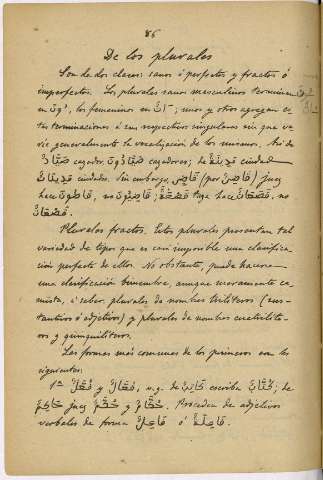 86
De los plurales
Son de dos clases: sanos ó perfectos y fractos ó
imperfectos. Los plurales sanos masculinos terminan
en ُونَ, los femeninos en َاتٌ; unos y otros agregan es-
tas terminaciones á sus respectivos singulares sin que va-
rie generalmente la vocalización de los mismos. Así de
صَيَّادٌ cazador, صَيَّادُونَ cazadores; de مَدِينَةٌ ciudad
مَدِينَاتٌ ciudades. Sin embargo, قَاضٍ (por قَاضِيٌ) juez
hace قَاضُونَ, no قَاضِيُونَ; قَصْعَةٌ taza hace قَصَعَاتٌ, no
قَصْعَاتٌ.
Plurales fractos. Estos plurales presentan tal
variedad de tipos que es casi imposible una clasifica-
ción perfecta de ellos. No obstante, puede hacerse
una clasificación bimembre, aunque meramente ca-
suista, á saber, plurales de nombres trilíteros (sus-
tantivos ó adjetivos) y plurales de nombres cuatrilíte-
ros y quinquilíteros.
Las formas más comunes de los primeros son las
siguientes:
1ª فُعَّالٌ y فُعَّلٌ, v.g. de كَاتِبٌ escriba كُتَّابٌ; de
حَاكِمٌ juez حُكَّمٌ y حُكَّامٌ. Proceden de adjetivos
verbales de forma فَاعِلٌ ó فَاعِلَةٌ.